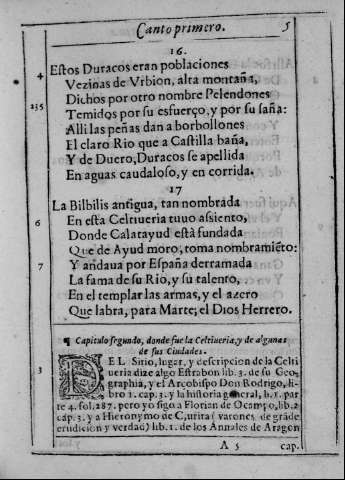 Canto primero. 5
16.
4 Estos Duracos eran poblaciones
Vezinas de Vrbion, alta montaña,
235 Dichos por otro nombre Pelendones
Temidos por su esfuerço, y por su saña:
Alli las peñas dan a borbollones
El claro Rio que a Castilla baña,
Y de Duero, Duracos se apellida
En aguas caudaloso, y en corrida.
17
La Bilbilis antigua, tan nombrada
6 En esta Celtiueria tuuo assiento,
Donde Calatayud está fundada
Que de Ayud moro, toma nombramiẽto:
7 Y andaua por España derramada
La fama de su Rio, y su talento,
En el templar las armas, y el azero
Que labra, para Marte; el Dios Herrero.
¶ Capitulo segundo, donde fue la Celtiueria, y de algunas
de sus Ciudades.
3 DE L Sitio, lugar, y descripcion de la Celti
ueria dize algo Estrabon lib. 3. de su Geo-
graphia, y el Arçobispo Don Rodrigo, li-
bro 1. cap. 3. y la historia general, li. 1. par
te 4. fol. 287. pero yo sigo a Florian de Ocampo, lib. 2
cap. 3. y a Hieronymo de Çurita (varones de grãde
erudicion y verdad) lib. 1. de los Annales de Aragon
A 5 cap.